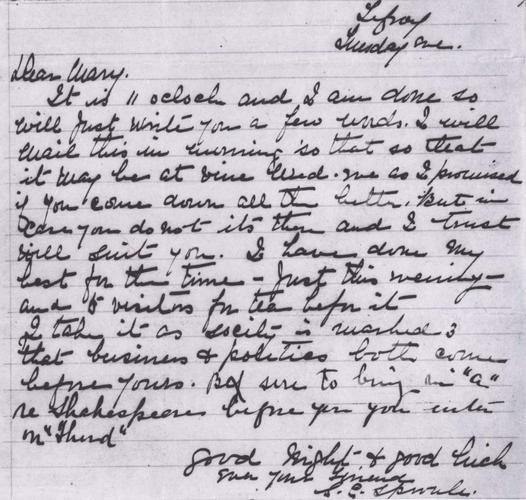 Lefroy
Tuesday eve.
Dear Mary.
It is 11 oclock and I am done so
will just write you a few words. I will
mail this in morning so that so that
it may be at vine Wed. eve as I promised
if you come down all the better. But in
case you do not its then and I trust
will suit you. I have done my
best for the time - Just this evening -
and 5 visitors for tea before it
I take it as society is marked 3
that business & politics both come
before yours. Be sure to bring in "a"
re Shakespeare before you enter
on "Third"
good night & good luck
Ever your friend